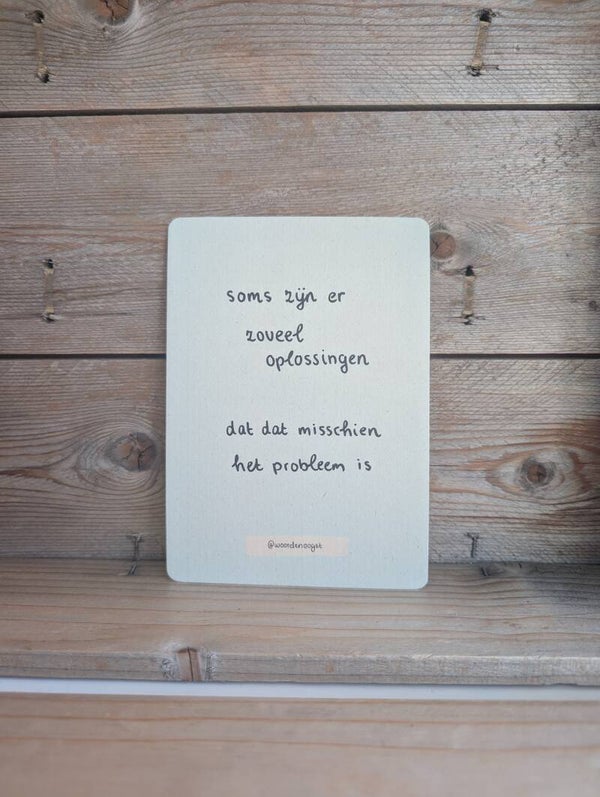 soms zijn er
zoveel
oplossingen
dat dat misschien
het probleem is
@woordenoogst